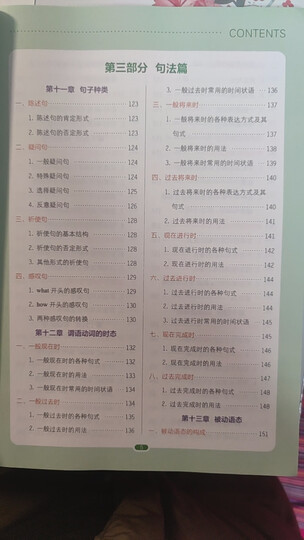 CONTENTS
第三部分 句法篇
第十一章 句子种类
一、陈述句 123
1. 陈述句的肯定形式 123
2. 陈述句的否定形式 123
二、疑问句 124
1. 一般疑问句 124
2. 特殊疑问句 124
3. 选择疑问句 125
4. 反意疑问句 126
三、祈使句 128
1. 祈使句的基本结构 128
2. 祈使句的否定形式 128
3. 其他形式的祈使句 128
四、感叹句 129
1. what 开头的感叹句 129
2. how 开头的感叹句 130
3. 两种感叹句的转换 130
第十二章 谓语动词的时态
一、一般现在时 132
1. 一般现在时的各种句式 132
2. 一般现在时的用法 133
3. 一般现在时常用的时间状语 134
二、一般过去时 134
1. 一般过去时的各种句式 135
2. 一般过去时的用法 136
3. 一般过去时常用的时间状语 136
三、一般将来时 137
1. 一般将来时的各种表达方式及其
句式 137
2. 一般将来时的用法 138
3. 一般将来时常用的时间状语 139
四、过去将来时 140
1. 过去将来时的各种表达方式及其
句式 140
2. 过去将来时的用法 141
五、现在进行时 141
1. 现在进行时的各种句式 142
2. 现在进行时的用法 142
六、过去进行时 144
1. 过去进行时的各种句式 144
2. 过去进行时的用法 144
3. 过去进行时常用的时间状语 145
七、现在完成时 145
1. 现在完成时的各种句式 146
2. 现在完成时的用法 146
八、过去完成时 147
1. 过去完成时的各种句式 148
2. 过去完成时的用法 148
第十三章 被动语态
一、被动语态的构成 151